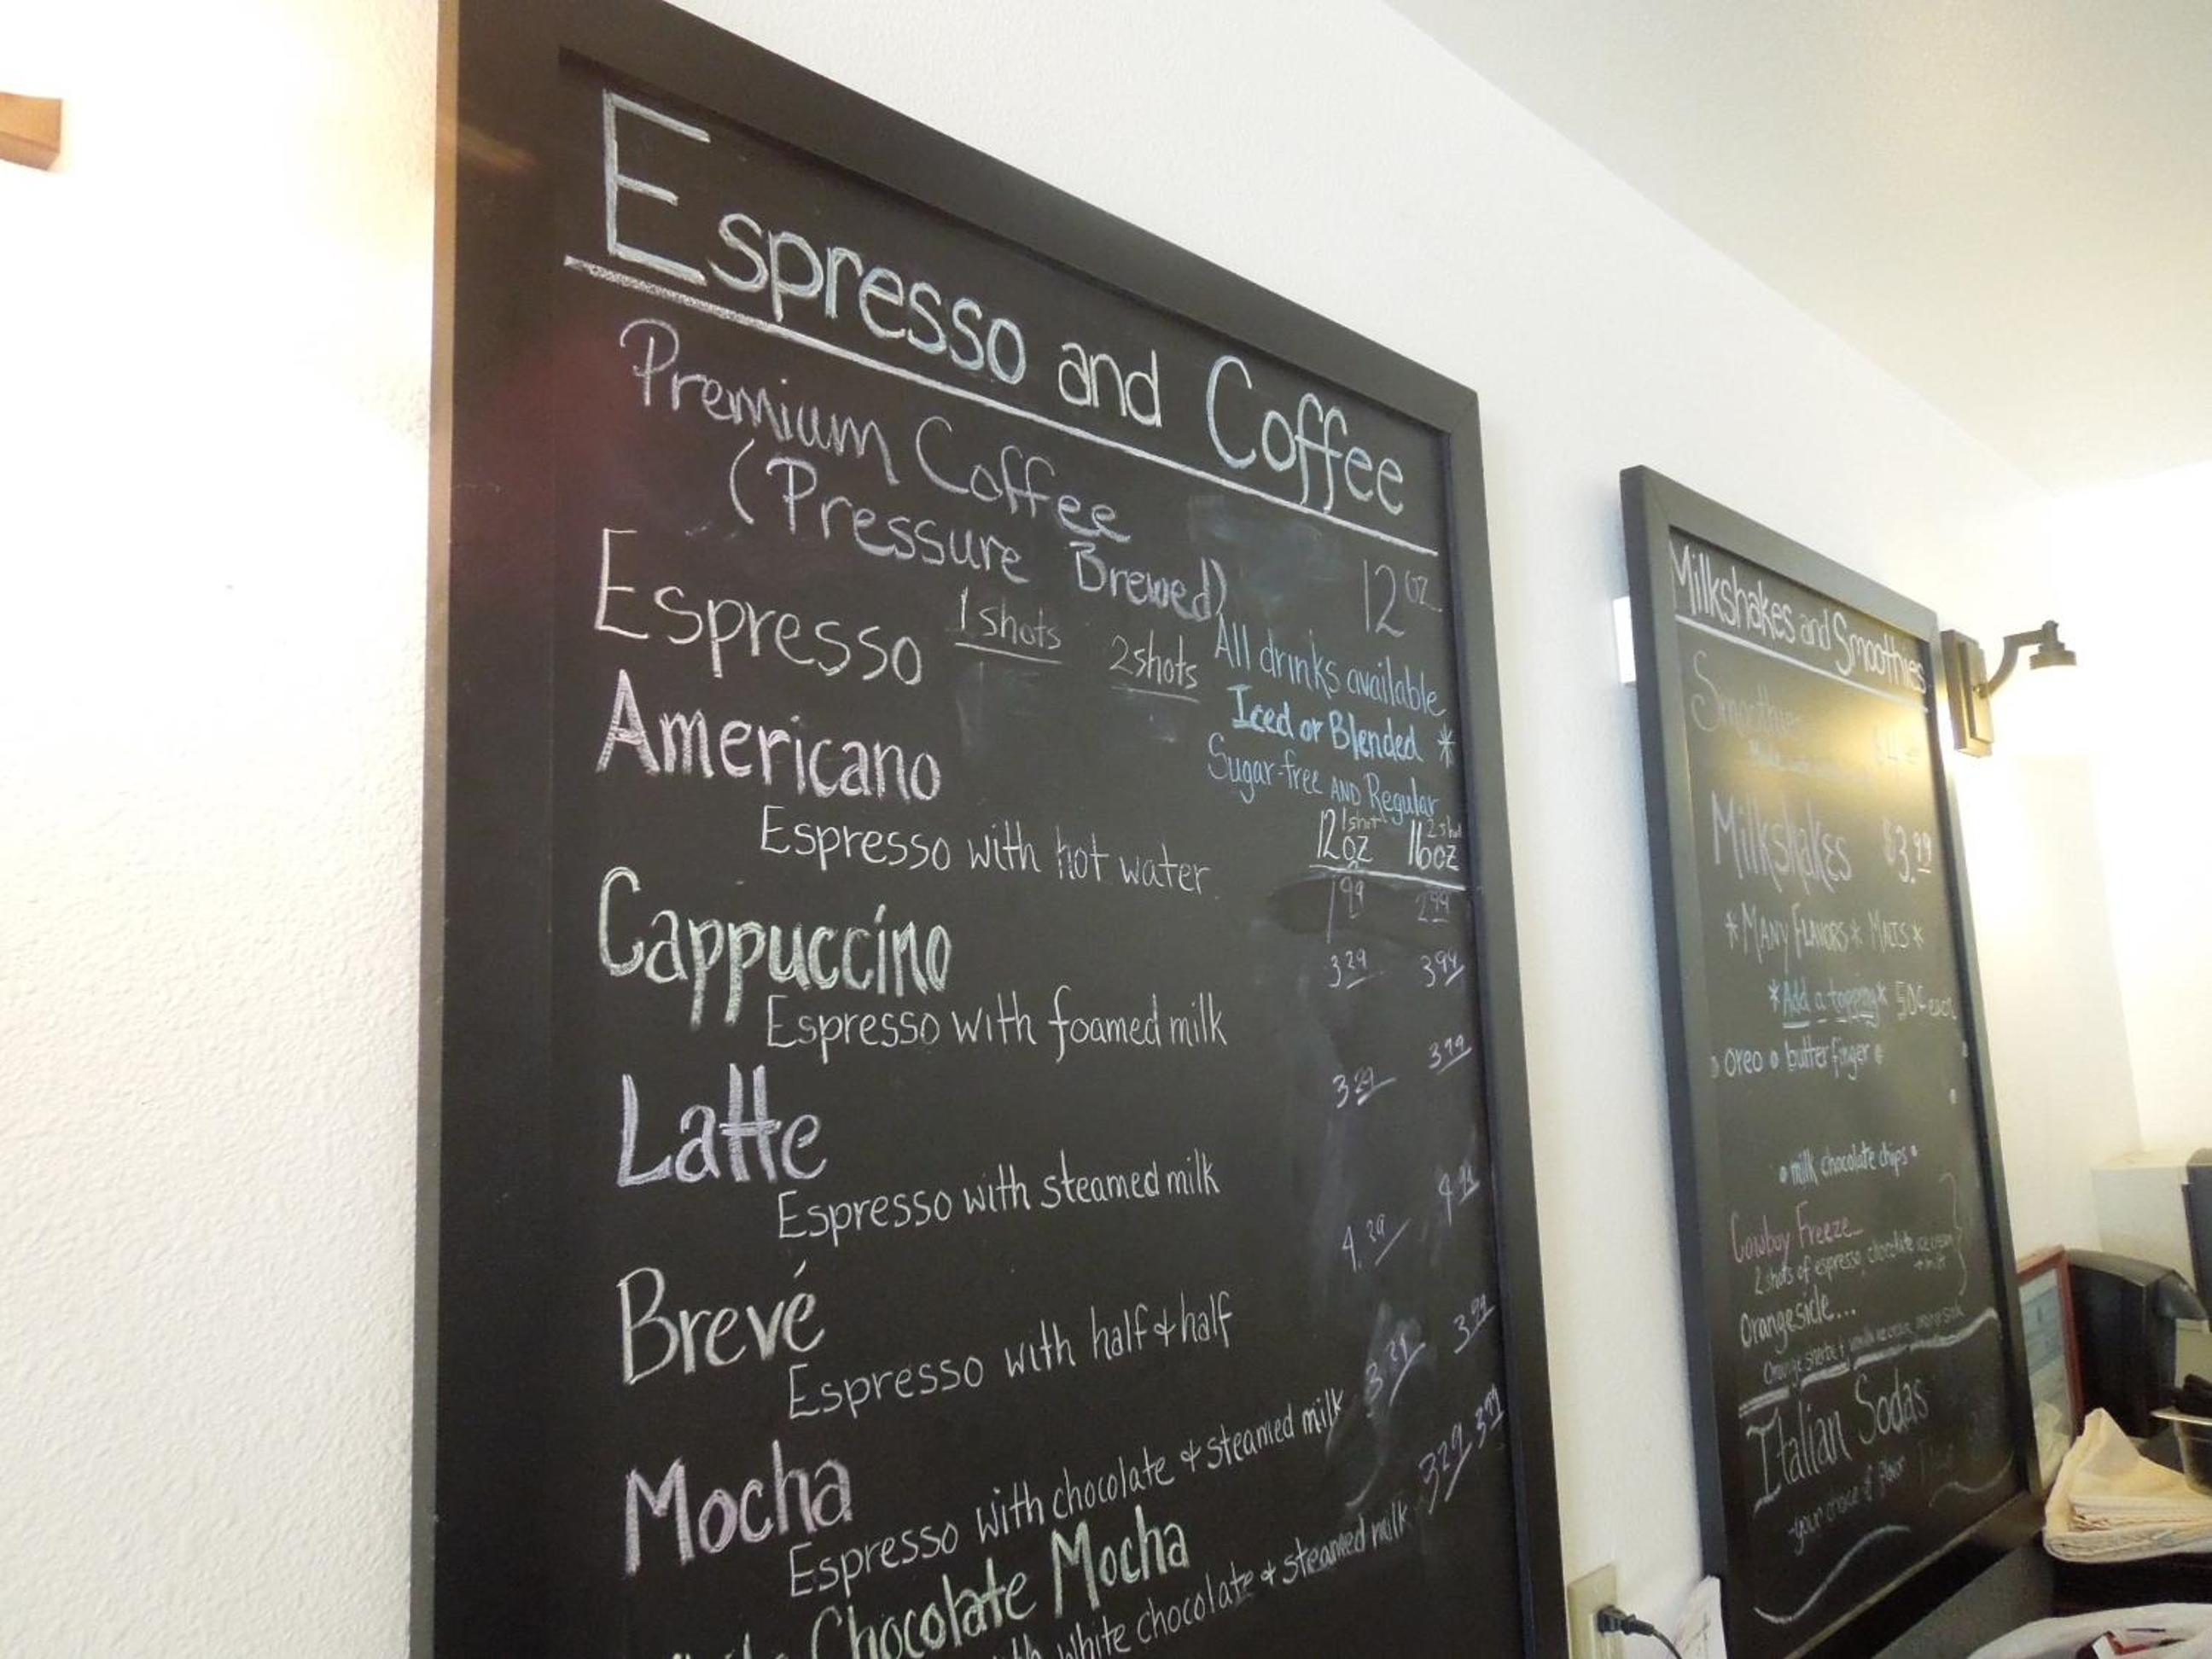 Espresso and Coffee
Premium Coffee
(Pressure Brewed)
12 oz
Espresso 1 shots 2 shots
All drinks available
Iced or Blended *
Sugar-free AND Regular
1 shot 2 sho
12oz 16oz
Americano
Espresso with hot water
1 99 2 99
Cappuccino
3 29 3 99
Espresso with foamed milk
Latte
3 29 3 99
Espresso with steamed milk
Brevé
4.29
Espresso with half & half
Mocha
3 29 3.99
Espresso with chocolate & steamed milk
Chocolate Mocha
3 29 3 99
white chocolate & steamed milk
Milkshakes and Smoothies
Smoothies
Milkshakes $3.99
*MANY FLAVORS* MALTS*
*Add a topping* 50¢ each
• oreo • butterfinger •
• milk chocolate chips •
Cowboy Freeze
2 shots of espresso, chocolate ice cream
+ milk
Orangesicle...
Orange sherbet, vanilla ice cream,
Italian Sodas
your choice of flavor